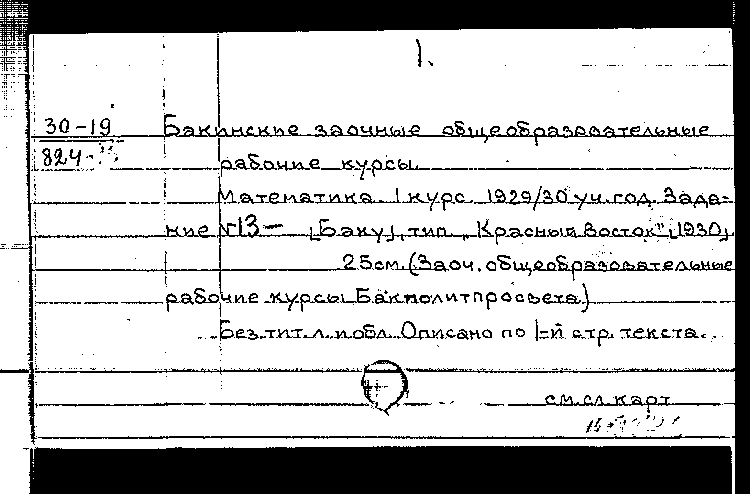 1.
30-19 Бакинские заочные общеобразовательные
824 рабочие курсы.
Математика. 1 курс. 1929/30 уч. год. Зада=
ние №13— [Баку], тип. „Красный Восток", [1930],
25см. (Заоч. общеобразовательные
рабочие курсы Бакполитпросвета)
Без тит. л. и обл. Описано по 1=й стр. текста.
см. сл. карт